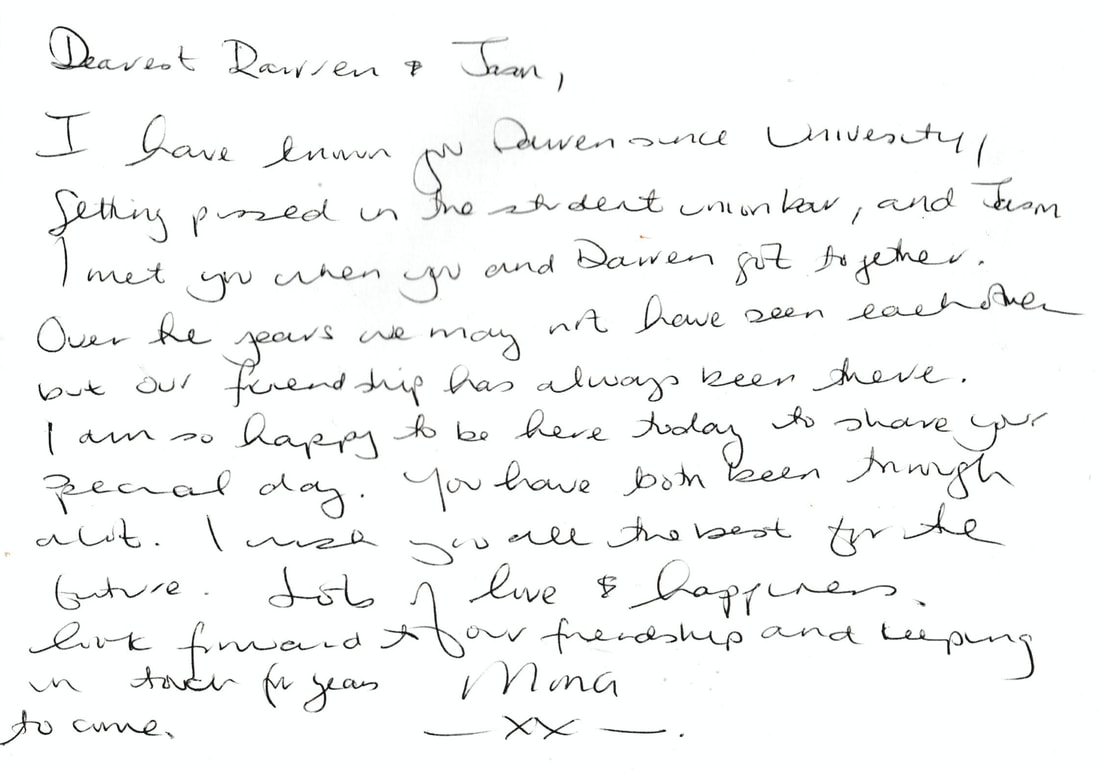 Dearest Darren & Jason,
I have known you Darren since University,
getting pissed in the student union bar, and Jason
I met you when you and Darren got together.
Over the years we may not have seen each other
but our friendship has always been there.
I am so happy to be here today to share your
special day. You have both been through
alot. I wish you all the best for the
future. Lots of love & happiness.
look forward to our friendship and keeping
in touch for years Mona
to come. — XX — .